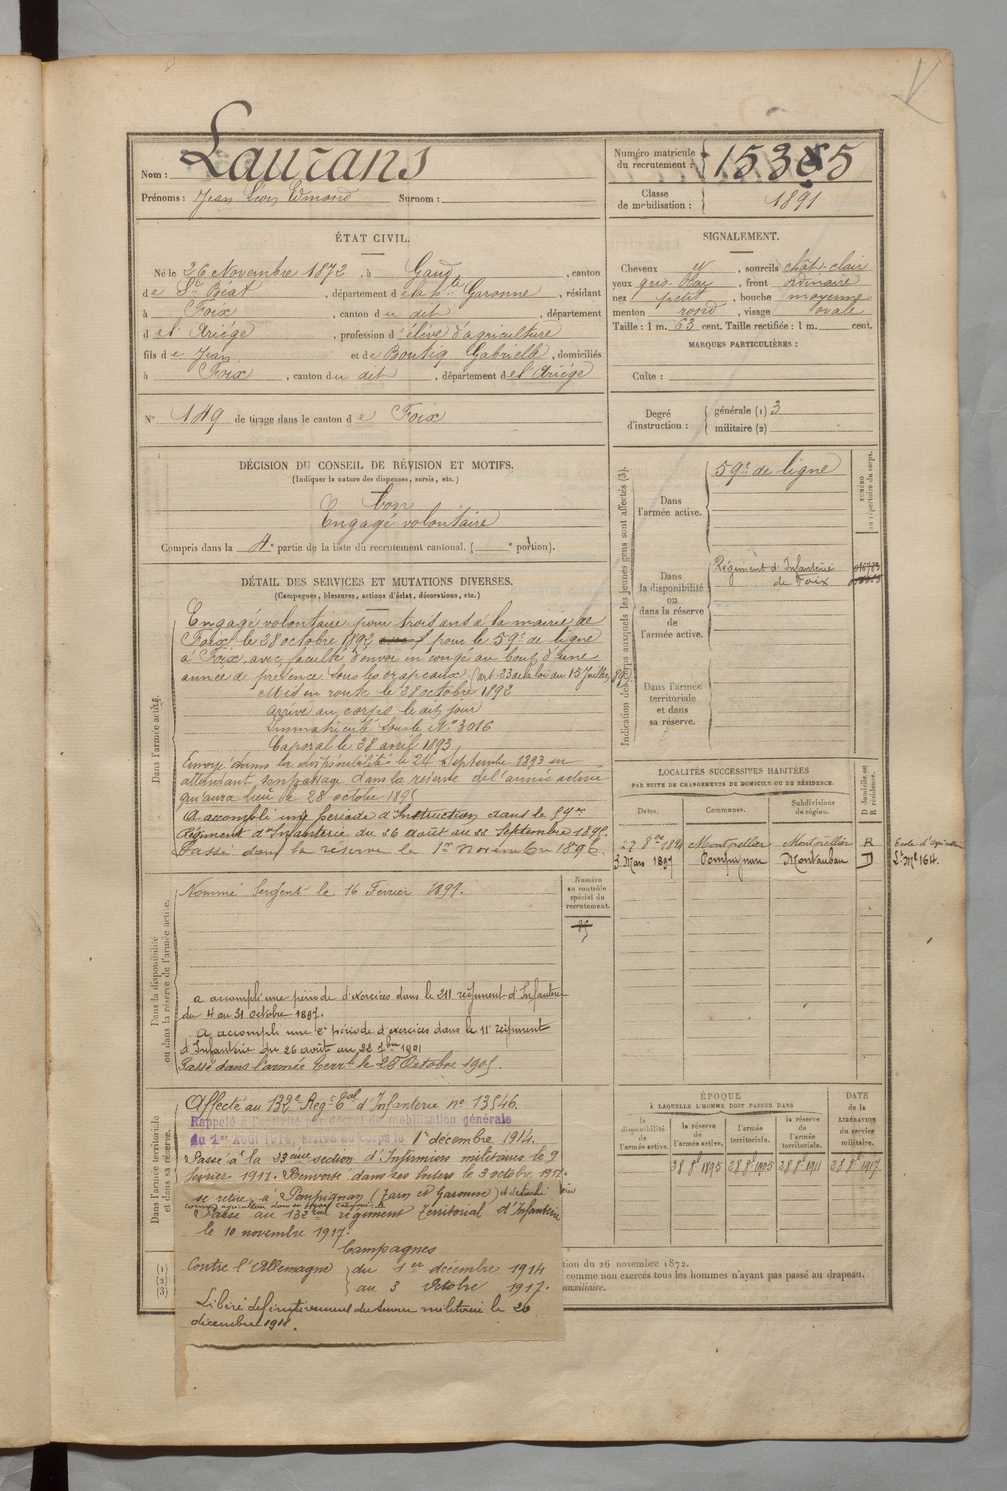 Nom : Laurans
Prénoms : Jean Léon Edmond Surnom :
Numéro matricule du recrutement : 1535
Classe de mobilisation : 1891
ÉTAT CIVIL.
Né le 26 Novembre 1872, à Gaud, canton
de St Béat, département de la hte Garonne, résidant
à Foix, canton du dit, département
d el Ariége, profession d'élève d'agriculture
fils de Jean et de Boutiq Gabrielle, domiciliés
à Foix, canton du dit, département del'Ariége
N° 149 de tirage dans le canton de Foix
SIGNALEMENT.
Cheveux , sourcils chât. clair
yeux gris , front ordinaire
nez petit, bouche moyenne
menton rond, visage ovale
Taille : 1 m. 63 cent. Taille rectifiée : 1 m. cent.
MARQUES PARTICULIÈRES :
Culte :
Degré d'instruction : générale (1) 3
militaire (2)
DÉCISION DU CONSEIL DE RÉVISION ET MOTIFS.
(Indiquer la nature des dispenses, sursis, etc.)
bon
Engagé volontaire
Compris dans la 4e partie de la liste du recrutement cantonal. ( e portion).
DÉTAIL DES SERVICES ET MUTATIONS DIVERSES.
(Campagnes, blessures, actions d'éclat, décorations, etc.)
Dans l'armée active.
Engagé volontaire pour trois ans à la mairie de
Foix le 28 octobre 1892 pour le 59e de ligne
à Foix, avec faculté d'envoi en congé au bout d'une
année de présence sous les drapeaux. (art. 23 de la loi du 15 Juillet 89)
Mis en route le 28 octobre 1892
Arrivé au corps le dit jour
Immatriculé sous le N° 3016
Caporal le 28 avril 1893
Envoyé dans la disponibilité le 24 Septembre 1893 en
attendant son passage dans la réserve de l'armée active
qui aura lieu le 28 octobre 1895
A accompli une période d'Instruction dans le 59me
Régiment d'Infanterie du 26 août au 22 Septembre 1895.
Passé dans la réserve le 1er novembre 1895.
Dans la disponibilité ou dans la réserve de l'armée active.
Nommé Sergent le 16 Février 1897.
Numéro au contrôle spécial du recrutement.
a accompli une période d'exercices dans le 211 régiment d'Infanterie
du 4 au 31 Octobre 1897.
A accompli une 2e période d'exercices dans le 11e régiment
d'Infanterie du 26 août au 22 7bre 1901
Passé dans l'armée Terrle le 28 Octobre 1905.
Dans l'armée territoriale et dans sa réserve.
Affecté au 132e Régt Tal d'Infanterie n° 13546.
Rappelé à l'activité par décret de mobilisation générale
du 1er Août 1914, arrivé au corps le 1er décembre 1914.
Passé à la 23ème section d'Infirmiers militaires le 9
février 1917. Renvoyé dans ses foyers le 3 octobre 1917.
se retire à Pompignan (Tarn et Garonne) détaché
Passé au 132ème régiment Territorial d'Infanterie
le 10 novembre 1917.
Campagnes
Contre l'Allemagne du 1er décembre 1914
au 3 Octobre 1917.
Libéré définitivement du service militaire le 26
décembre 1918.
Indication des corps auxquels les jeunes gens sont affectés (3).
Dans l'armée active.
59e de ligne
NUMÉRO au répertoire du corps.
Dans la disponibilité ou dans la réserve de l'armée active.
Régiment d'Infanterie
de Foix
Dans l'armée territoriale et dans sa réserve.
LOCALITÉS SUCCESSIVES HABITÉES
PAR SUITE DE CHANGEMENTS DE DOMICILE OU DE RÉSIDENCE.
Dates. Communes. Subdivisions de région. D domicile ou R résidence.
27 8bre 1894 Montpellier Montpellier R Ecole d'Agriculture
3 Mars 1897 Pompignan Montauban D Lt Me 164.
ÉPOQUE
À LAQUELLE L'HOMME DOIT PASSER DANS
la disponibilité de l'armée active. la réserve de l'armée active. l'armée territoriale. la réserve de l'armée territoriale.
DATE de la LIBÉRATION du service militaire.
28 8e 1895 28 8e 1905 28 8e 1911 28 8e 1917
(1)
(2)
(3)
tion du 26 novembre 1872.
comme non exercés tous les hommes n'ayant pas passé au drapeau.
auxiliaire.